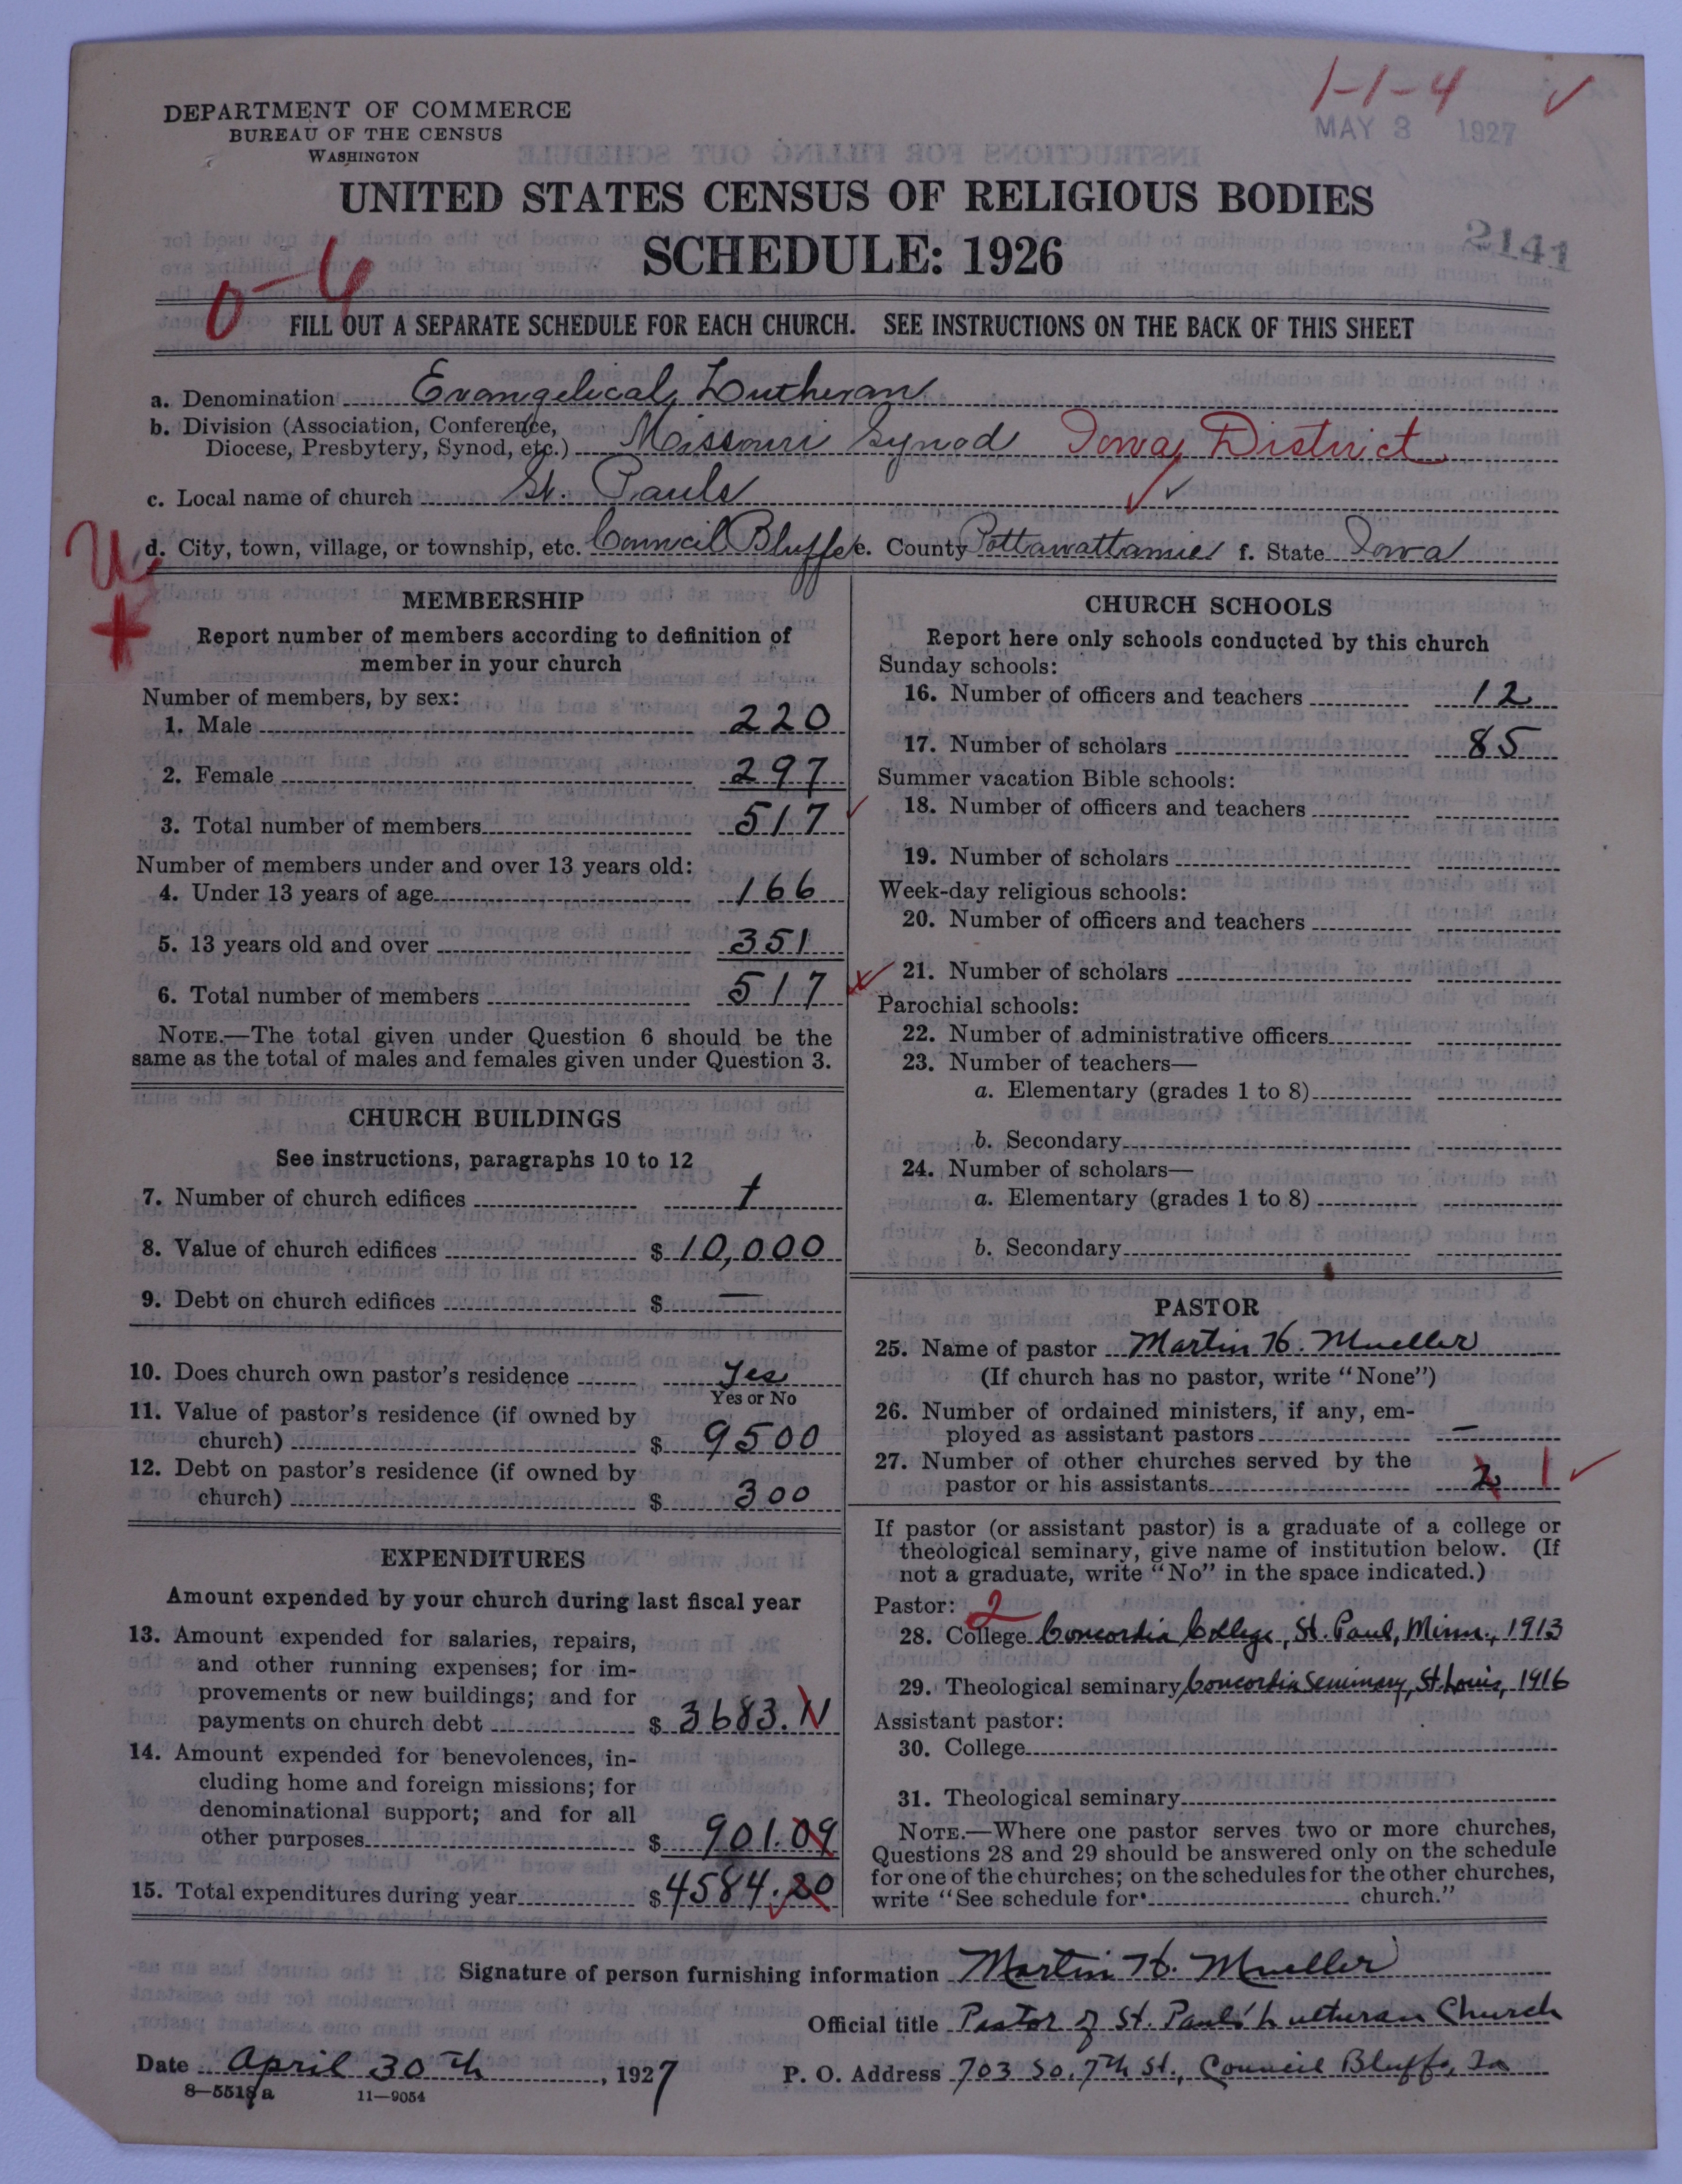 1-1-4 ✓
DEPARTMENT OF COMMERCE
BUREAU OF THE CENSUS
WASHINGTON
MAY 3 1927
UNITED STATES CENSUS OF RELIGIOUS BODIES
SCHEDULE: 1926
2141
0-4
FILL OUT A SEPARATE SCHEDULE FOR EACH CHURCH. SEE INSTRUCTIONS ON THE BACK OF THIS SHEET
a. Denomination Evangelical Lutheran
b. Division (Association, Conference,
Diocese, Presbytery, Synod, etc.) Missouri Synod Iowa District
c. Local name of church St. Pauls
U
d. City, town, village, or township, etc. Council Bluffs e. County Pottawattamie f. State Iowa
+
MEMBERSHIP
Report number of members according to definition of
member in your church
Number of members, by sex:
1. Male 220
2. Female 297
3. Total number of members 517 ✓
Number of members under and over 13 years old:
4. Under 13 years of age 166
5. 13 years old and over 351
6. Total number of members 517
NOTE.—The total given under Question 6 should be the
same as the total of males and females given under Question 3.
CHURCH BUILDINGS
See instructions, paragraphs 10 to 12
7. Number of church edifices 1
8. Value of church edifices $ 10,000
9. Debt on church edifices $ —
10. Does church own pastor's residence Yes
Yes or No
11. Value of pastor's residence (if owned by
church) $ 9500
12. Debt on pastor's residence (if owned by
church) $ 300
EXPENDITURES
Amount expended by your church during last fiscal year
13. Amount expended for salaries, repairs,
and other running expenses; for im-
provements or new buildings; and for
payments on church debt $ 3683.11
14. Amount expended for benevolences, in-
cluding home and foreign missions; for
denominational support; and for all
other purposes $ 901.09
15. Total expenditures during year $ 4584.20
CHURCH SCHOOLS
Report here only schools conducted by this church
Sunday schools:
16. Number of officers and teachers 12
17. Number of scholars 85
Summer vacation Bible schools:
18. Number of officers and teachers
19. Number of scholars
Week-day religious schools:
20. Number of officers and teachers
21. Number of scholars
Parochial schools:
22. Number of administrative officers
23. Number of teachers—
a. Elementary (grades 1 to 8)
b. Secondary
24. Number of scholars—
a. Elementary (grades 1 to 8)
b. Secondary
PASTOR
25. Name of pastor Martin H. Mueller
(If church has no pastor, write "None")
26. Number of ordained ministers, if any, em-
ployed as assistant pastors —
27. Number of other churches served by the
pastor or his assistants 2 1 ✓
If pastor (or assistant pastor) is a graduate of a college or
theological seminary, give name of institution below. (If
not a graduate, write "No" in the space indicated.)
Pastor: 2
28. College Concordia College, St. Paul, Minn., 1913
29. Theological seminary Concordia Seminary, St. Louis, 1916
Assistant pastor:
30. College
31. Theological seminary
NOTE.—Where one pastor serves two or more churches,
Questions 28 and 29 should be answered only on the schedule
for one of the churches; on the schedules for the other churches,
write "See schedule for church."
Signature of person furnishing information Martin H. Mueller
Official title Pastor of St. Paul's Lutheran Church
Date April 30th, 1927 P. O. Address 703 So. 7th St., Council Bluffs, Ia
8—5518a 11—9054